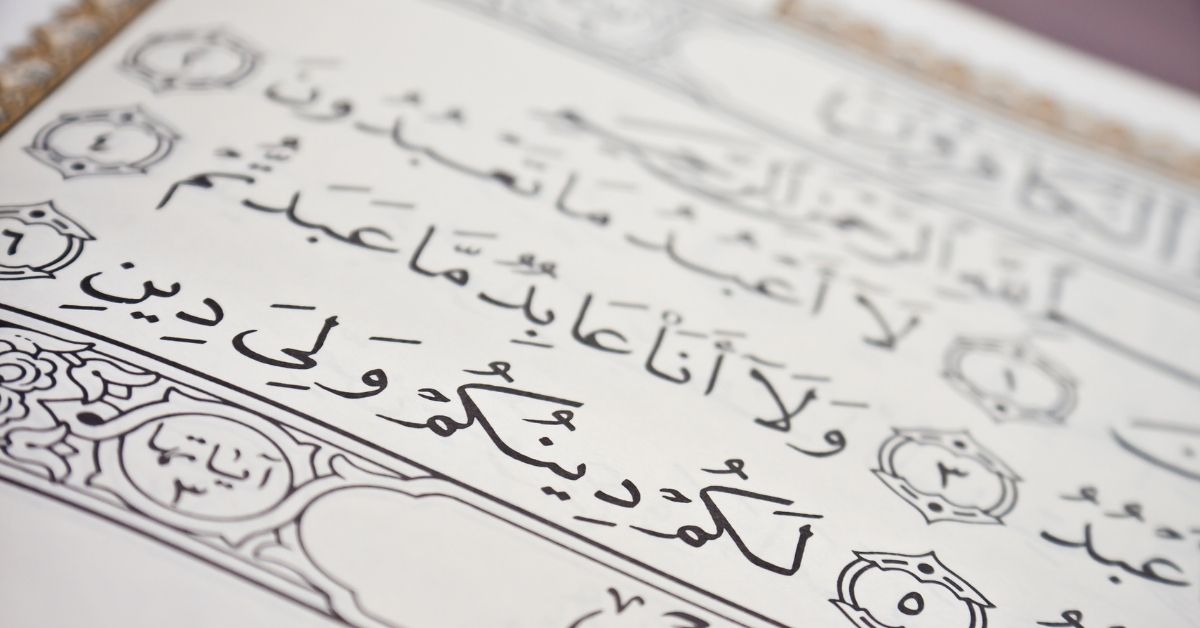 الكَافِرُونَ
اللَّهِ الرَّحْمَٰنِ الرَّحِيمِ
١ لَا أَعْبُدُ مَا تَعْبُدُونَ ٢
عْبُدُ ٣ وَلَا أَنَا عَابِدٌ مَّا عَبَدتُّمْ ٤
٥ لَكُمْ دِينُكُمْ وَلِيَ دِينِ ٦
آيَاتُهَا ٣